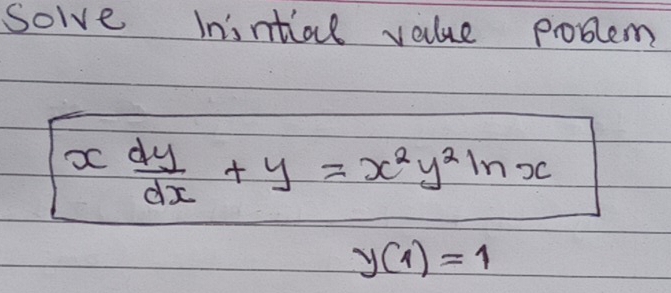 Solve Inintial value problem
x dy/dx + y = x² y² ln x
y(1) = 1